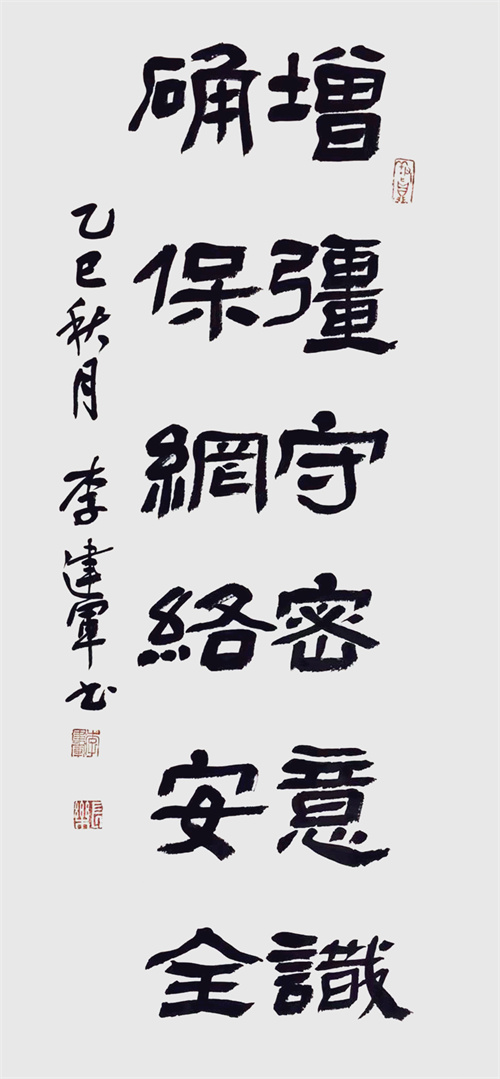 增彊守密意識
确保網絡安全
乙巳秋月 李建軍书